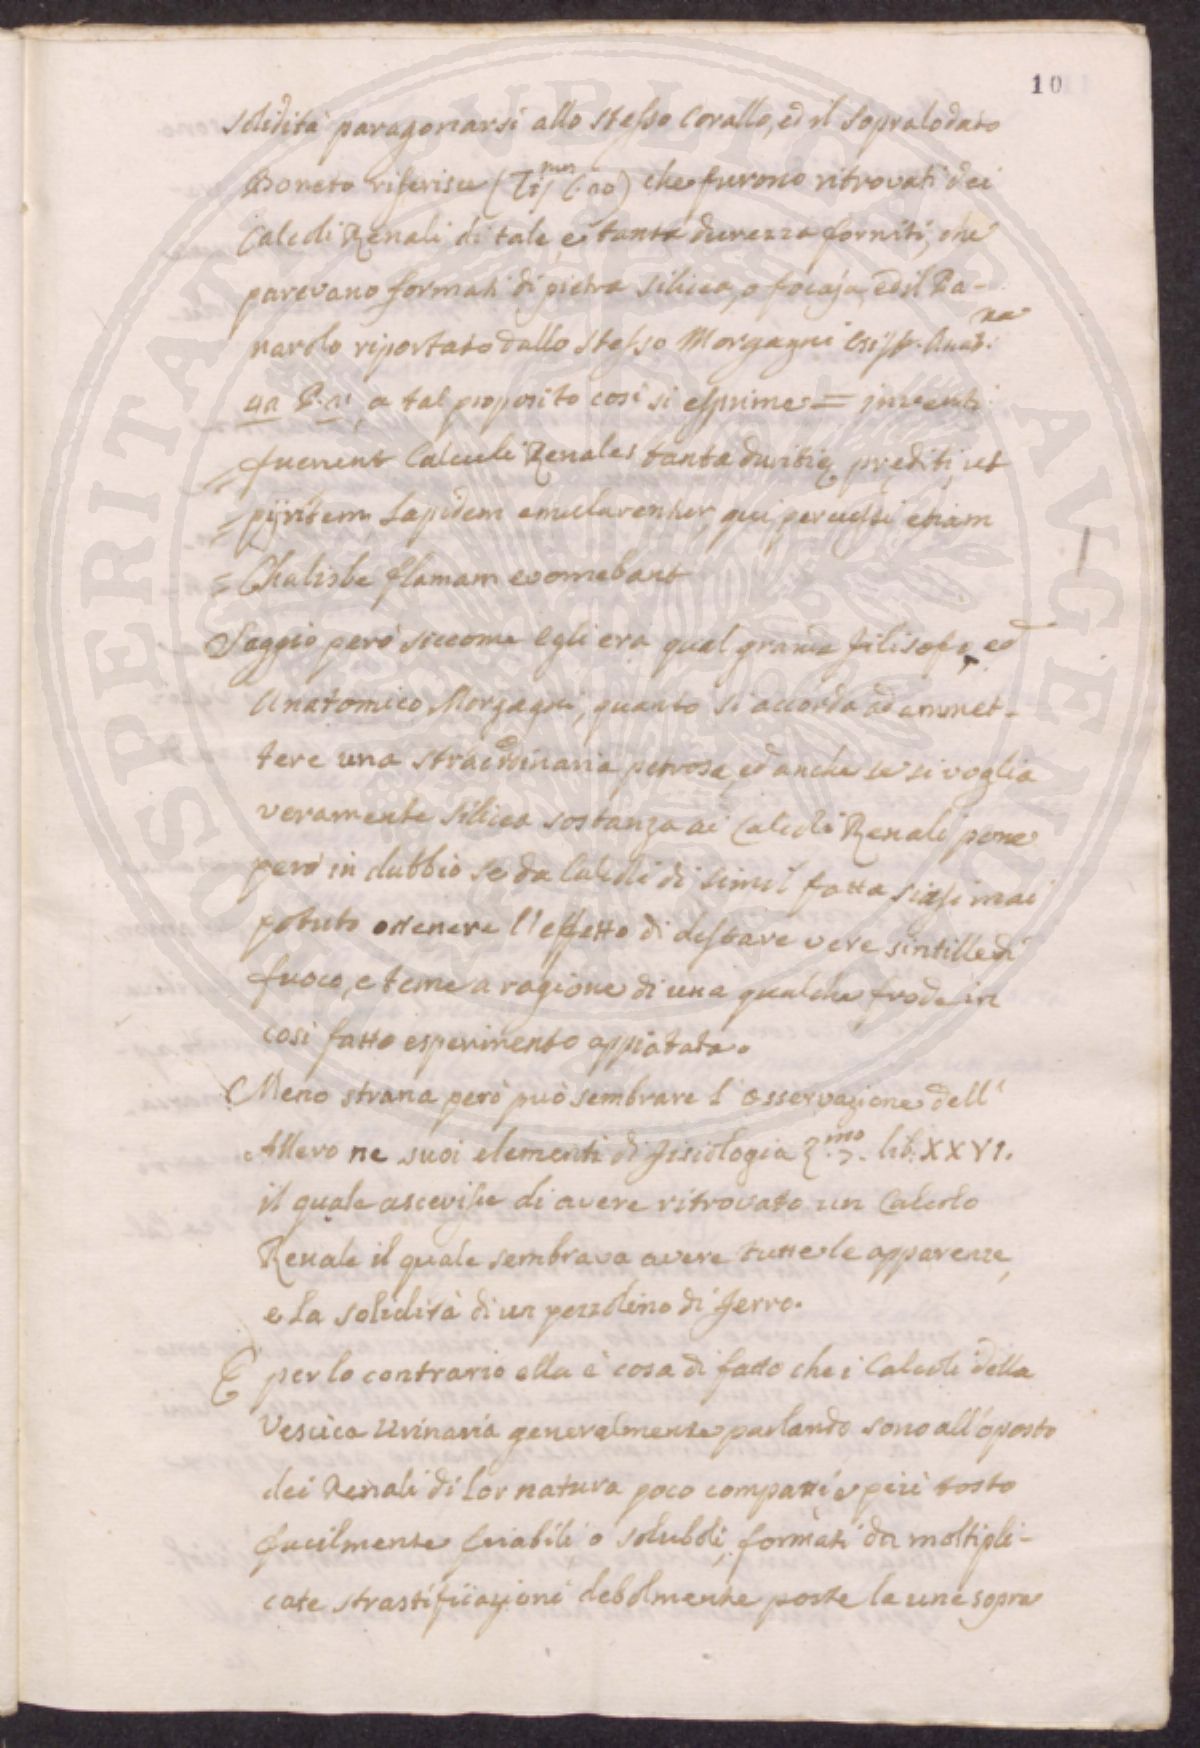 10
solidità paragonarsi allo stesso Corallo, ed il Sopralodato
Boneto riferisce che furono ritrovati dei
Calcoli Renali di tale, e tanta durezza forniti, che
parevano formati di pietra silicea, o focaja, ed il Ba-
narolo riportato dallo stesso Morgagni
a tal proposito così si esprime = inventi
= fuerunt Calculi Renales tanta duritie prediti, ut
= pijritem Lapidem emularentur, qui percussi etiam
= Chalibe flamam evomebant
Saggio però siccome egli era qual grande filisofo, ed
Anatomico Morgagni, quanto si accorda ad ammet-
tere una straordinaria petrosa, ed anche se si voglia
veramente silicea sostanza ai Calcoli Renali pone
però in dubbio se da Calcoli di simil fatta siasi mai
potuto ottenere l'effetto di destare vere sintille di
fuoco, e teme a ragione di una qualche frode in
così fatto esperimento appiatata.
Meno strana però può sembrare l'osservazione dell'
Allero ne suoi elementi di fisiologia lib: XXVI.
il quale asserisce di avere ritrovato un Calcolo
Renale il quale sembrava avere tutte le apparenze,
e la solidità di un pezzolino di ferro.
E per lo contrario ella è cosa di fatto che i Calcoli della
Vescica Urinaria generalmente parlando sono all'oposto
dei Renali di lor natura poco compatti e più tosto
facilmente friabili o soluboli, formati da moltipli-
cate strastificazioni debolmente poste le une sopra
SOSPERITATI PVBLICAE AVGENDAE